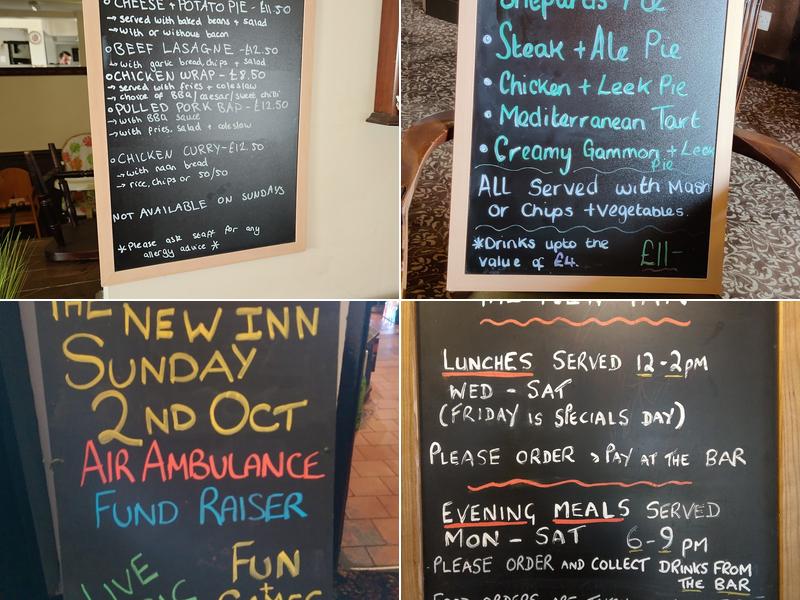 CHEESE + POTATO PIE - £11.50
→ served with baked beans + salad
→ with or without bacon
BEEF LASAGNE - £12.50
→ with garlic bread, chips + salad
CHICKEN WRAP - £8.50
→ served with fries + coleslaw
→ choice of BBQ/caesar/sweet chilli
PULLED PORK BAP - £12.50
→ with BBQ sauce
→ with fries, salad + coleslaw
CHICKEN CURRY - £12.50
→ with naan bread
→ rice, chips or 50/50
NOT AVAILABLE ON SUNDAYS
*Please ask staff for any
allergy advice *
Shepards Pie
• Steak + Ale Pie
• Chicken + Leek Pie
• Mediterranean Tart
• Creamy Gammon + Leek
Pie
ALL Served with Mash
or Chips + Vegetables.
*Drinks upto the
value of £4.
£11-
THE NEW INN
SUNDAY
2ND OCT
AIR AMBULANCE
FUND RAISER
LIVE
FUN
+
LUNCHES SERVED 12-2PM
WED - SAT
(FRIDAY IS SPECIALS DAY)
PLEASE ORDER & PAY AT THE BAR
EVENING MEALS SERVED
MON - SAT 6-9 PM
PLEASE ORDER AND COLLECT DRINKS FROM
THE BAR